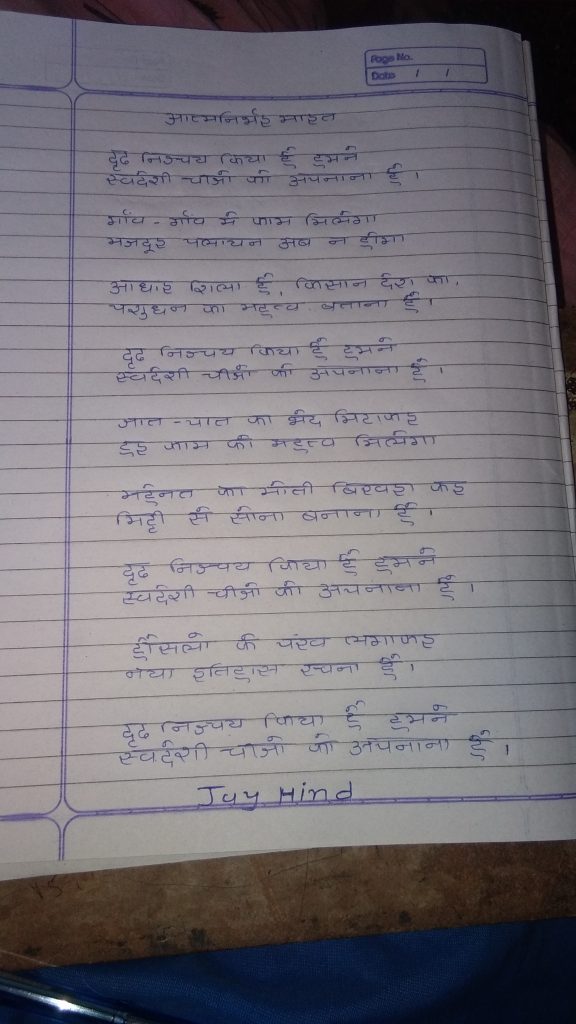 Page No.
Date / /
आत्मनिर्भर भारत
दृढ निश्चय किया है हमने
स्वदेशी चीजो को अपनाना है।
गाँव - गाँव मे काम मिलेगा
मजदूर पलायन अब न होगा
आधार शिला है, किसान देश का,
पशुधन का महत्व बताना है।
दृढ निश्चय किया है हमने
स्वदेशी चीजो को अपनाना है।
जात - पात का भेद मिटाकर
हर काम को महत्व मिलेगा
महेनत का मोती बिखरा कर
मिट्टी से सोना बनाना है।
दृढ निश्चय किया है हमने
स्वदेशी चीजो को अपनाना है।
हौसलो के पंख लगाकर
नया इतिहास रचना है।
दृढ निश्चय किया है हमने
स्वदेशी चीजो को अपनाना है।
Jay Hind